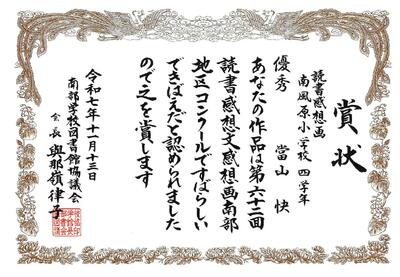 賞状
読書感想画
南風原小学校 四学年
優秀 當山 快
あなたの作品は第六十二回
読書感想文感想画南部
地区コンクールですばらしい
できばえだと認められました
ので之を賞します
令和七年十一月十三日
南部学校図書館協議会
会長 與那嶺律子